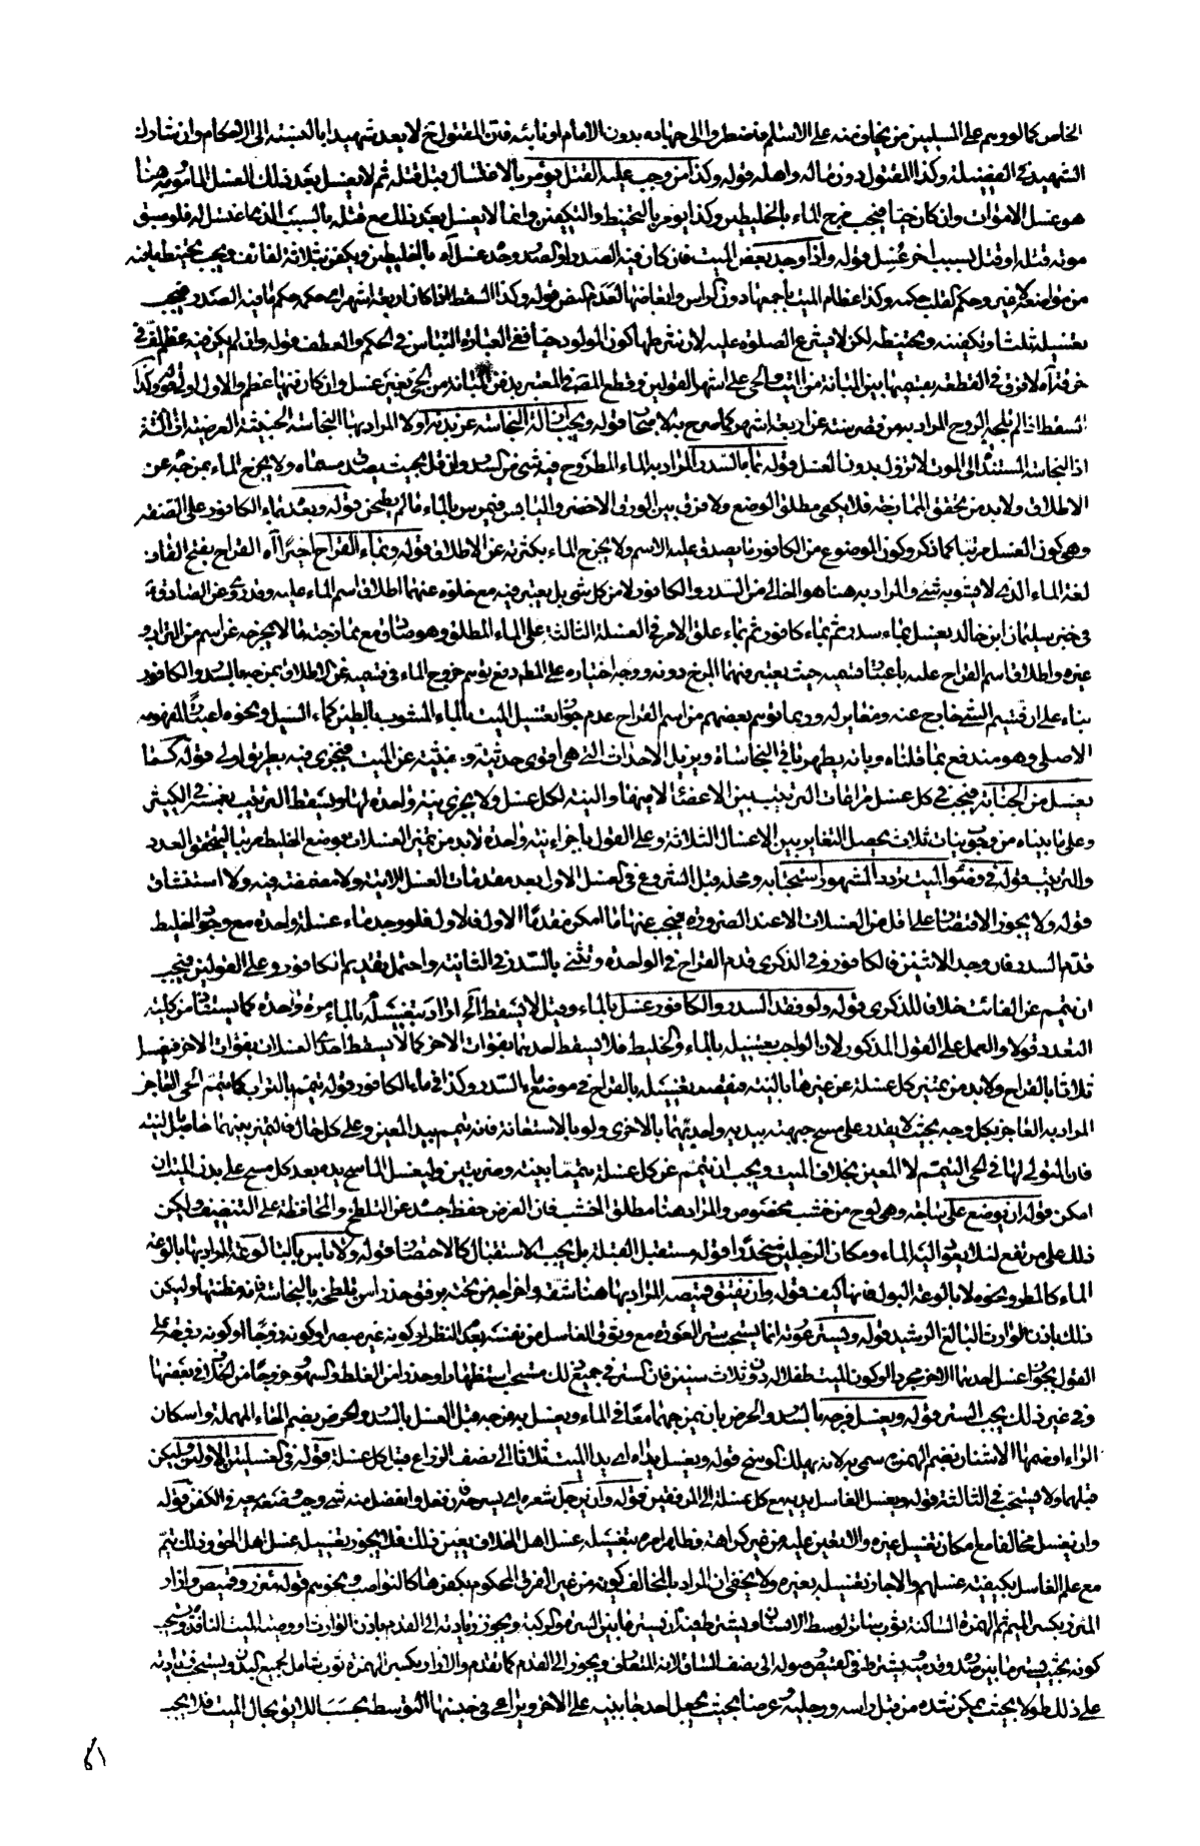 الخاص كما لو دهم على المسلمين من يخاف منه على الاسلام فاضطروا الى جهاده بدون الامام او نائبه فان المقتول ح لا يعد شهيدا بالنسبة الى الاحكام وان شارك
الشهيد في الفضيلة وكذا المقتول دون ماله واهله قوله وكذا من وجب عليه القتل يؤمر بالاغتسال قبل قتله ثم لا يغسل بعد ذلك الغسل المأمور به هنا
هو غسل الاموات وان كان حيا فيجب مزج الماء بالخليطين وكذا يؤمر بالتحنيط والتكفين وانما لا يغسل بعد ذلك مع قتله بالسبب الذي اغتسل له فلو سبق
موته قتله او قتل بسبب اخر غسل قوله واذا وجد بعض الميت فان كان فيه الصدر او الصدر وحده غسل آه بالخليطين ويكفن بثلاثة لفائف ويجب تحنيط ما فيه
من مواضعه لا غير وحكم القلب حكمه وكذا عظام الميت باجمعها دون الراس وابعاضها لعدم النص قوله وكذا السقط اذا كان له اربعة اشهر اي حكمه حكم ما فيه الصدر فيجب
تغسيله ثلثا وتكفينه وتحنيطه لكن لا يشرع الصلوة عليه لان شرطها كون المولود حيا ففي العبارة التباس في الحكم والعطف قوله وان لم يكن فيه عظم لف في
خرقة آه لا فرق في القطعة بعضها بين المبانة من الميت والحي على اشهر القولين وقطع المصنف في المعتبر بدفن المبانة من الحي بغير غسل وان كان فيها عظم والاول اولى قوله وكذا
السقط اذا لم تلجه الروح المراد به من نقص سنه عن اربعة اشهر كما صرح به الاصحاب قوله ويجب ازالة النجاسة عن بدنه اولا المراد بها النجاسة الخبيثة العرضية
اذ النجاسة المستندة الى الموت لا تزول بدون الغسل قوله بماء السدر المراد به الماء المطروح فيه شئ من السدر وان قل بحيث يصدق مسماه ولا يخرج الماء بمزجه عن
الاطلاق ولا بد من تحقق الممازجة فلا يكفي مطلق الوضع ولا فرق بين الورق الاخضر واليابس فيمرس بالماء ما لم يطحن قوله وبعده بماء الكافور على الصفة
وهي كون الغسل مرتبا كما ذكر وكون الموضوع من الكافور ما يصدق عليه الاسم ولا يخرج الماء بكثرته عن الاطلاق قوله وبماء القراح اخيرا آه القراح بفتح القاف
لغة الماء الذي لا يشوبه شئ والمراد به هنا هو الخالي من السدر والكافور لا من كل شئ بل يعتبر فيه مع خلوه عنهما اطلاق اسم الماء عليه وقد روي عن الصادق
في خبر سليمان ابن خالد يغسل بماء سدر ثم بماء كافور ثم بماء علق الامر في الغسلة الثالثة على الماء المطلق وهو صادق مع ممازجته ما لا يخرجه عن اسم من التراب و
غيره واطلاق اسم القراح عليه باعتبار قسميه حيث يعتبر فيهما المزج دونه ووجه اختياره على المطلق دفع توهم خروج الماء في قسيميه عن الاطلاق بمزجها بالسدر والكافور
بناء على ان قسيم الشئ خارج عنه ومغاير له وربما توهم بعضهم من اسم القراح عدم جواز تغسيل الميت بالماء المشوب بالطين كماء السيل ونحوه لاعتبار المفهومه
الاصلي وهو مندفع بما قلناه وبانه يطهر باقي النجاسات ويزيل الاحداث التي هي اقوى حدثية و عن الميت فيجزي فيه بطريق اولى قوله كما
يغسل من الجنابة فيجب في كل غسل مراعات الترتيب بين الاعضاء لا فيها والنية لكل غسل ولا يجزي نية واحدة لها ويسقط الترتيب بغمسه في الكثير
وعلى ما بيناه من وجوب نيات ثلاث يحصل التغاير بين الاغسال الثلاثة وعلى القول باجزاء نية واحدة لا بد من تميز الغسلات بوضع الخليط مرتبا ليتحقق العدد
والترتيب قوله في وضوء الميت تردد المشهور استحبابه ومحله قبل الشروع في الغسل الاول بعد مقدمات الغسل الاتية ولا مضمضة فيه ولا استنشاق
قوله ولا يجوز الاقتصار على اقل من الغسلات الا عند الضرورة فيجب عنها ما امكن مقدما الاول فالاول فلو وجد ماء غسلة واحدة مع وجود الخليط
قدم السدر فان وجد الاثنين فالكافور وفي الذكرى قدم القراح في الواحدة وتثني بالسدر في الثانية واحتمل تقديم الكافور وعلى القولين فيجب
ان تيمم عن الفائت خلافا للذكرى قوله ولو فقد السدر والكافور غسل بالماء وقيل لا يسقط آه اراد بتغسيله بالماء مرة واحدة كما يستفاد من كلية
التعدد قولا والعمل على القول المذكور لان الواجب تغسيله بالماء والخليط فلا يسقط احدهما بفوات الاخر كما لا يسقط احد الغسلات بفوات الاخر فيغسل
ثلاثا بالقراح ولا بد من تميز كل غسلة عن غيرها بالنية فيقصد تغسيله بالقراح في موضع ماء السدر وكذا في ماء الكافور قوله تيمم بالتراب كما يتيمم الحي العاجز
المراد به العاجز بكل وجه بحيث لا يقدر على مسح جبهته بيديه واحديهما بالاخرى ولو بالاستعانة فانه تيمم بيد المعين وعلى كل حال فالتميز بينهما حاصل بالنية
فان المتولي لها في الحي المتيمم لا المعين بخلاف الميت ويجب ان تيمم عن كل غسلة تيمما بنية وضربتين وليغسل الماسح يده بعد كل مسح على بدن الميت ان
امكن قوله ان يوضع على ساجة وهي لوح من خشب مخصوص والمراد هنا مطلق الخشب فان الغرض حفظ جسده عن التلطخ والمحافظة على التنظيف وليكن
ذلك على مرتفع لئلا يعود اليه الماء ومكان الرجلين منحدرا قوله مستقبل القبلة بل يجب الاستقبال كالاحتضار قوله ولا باس بالبالوعة المراد بها بالوعة
الماء كالمطر ونحوه لا بالوعة البول فانها كنيف قوله وان يفتق قميصه المراد بها هنا شقه واخراجه من تحته برفق حذرا من تلطخه بالنجاسة فانه مظنتها وليكن
ذلك باذن الوارث البالغ الرشيد قوله ويستر عورته انما يستحب ستر العورة مع وثوق الغاسل من نفسه بعدم النظر او كونه غير مبصر او كونه زوجا او كونه زوجة على
القول بجواز غسل احدهما الاخر مجردا او كون الميت طفلا له دون ثلاث سنين فان الستر في جميع ذلك مستحب استظهارا وحذرا من الغلط والسهو وخروجا من الخلاف في بعضها
وفي غير ذلك يجب الستر قوله ويغسل فرجه بالسدر والحرض بان يمزجهما معا في الماء ويغسل به فرجه قبل الغسل بالسدر والحرض بضم الحاء المهملة واسكان
الراء او ضمها الاشنان بضم الهمزة سمي به لانه يهلك الوسخ قوله ويغسل يداه اي يد الميت ثلاثا الى نصف الذراع قبل كل غسلة قوله في الغسلتين الاولتين وليكن
قبلهما ولا يستحب في الثالثة قوله ويغسل الغاسل يديه مع كل غسلة الى المرفقين قوله وان يرجل شعره اي يسرحه فان فعل وانفصل منه شئ وجب وضعه معه في الكفن قوله
وان يغسل مخالفا مع امكان تغسيل غيره والا تعين عليه من غير كراهة وظاهرهم ان تغسيله غسل اهل الخلاف يعين ذلك فلا يجوز تغسيله غسل اهل الحق وذلك يتم
مع علم الغاسل بكيفية غسلهم والا جاز تغسيله بغيره ولا يخفى ان المراد بالمخالف كونه من غير الفرق المحكوم بكفرها كالنواصب ونحوهم قوله مئزر وقميص وازار
المئزر بكسر الميم ثم الهمزة الساكنة ثوب ساتر لوسط الانسان ويشترط فيه ان يستر ما بين السرة والركبة ويجوز زيادته الى القدم باذن الوارث او وصية الميت النافذة ويستحب
كونه بحيث يستر ما بين صدره وقدميه ويشترط في القميص وصوله الى نصف الساق لانه المتعارف ويجوز الى القدم كما تقدم والازار بكسر الهمزة ثوب شامل لجميع البدن ويستحب زيادته
على ذلك طولا بحيث يمكن شده من قبل راسه ورجليه وعرضا بحيث يجعل احد جانبيه على الاخر ويراعى في جنسها التوسط بحسب اللائق بحال الميت فلا يجب